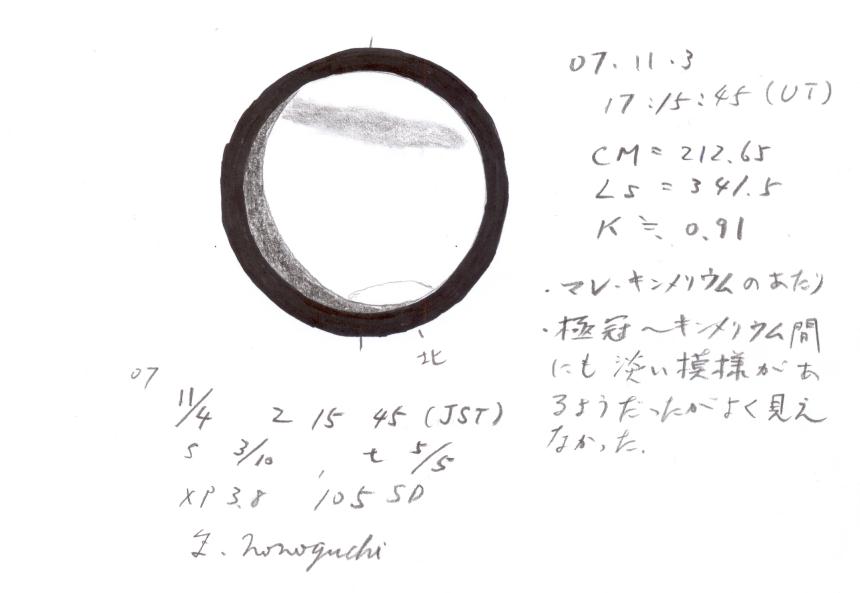 07.11.3
17:15:45 (UT)
CM = 212.65
Ls = 341.5
K ≒ 0.91
・マレ・キンメリウムのあたり
・極冠〜キンメリウム間
にも淡い模様があ
るようだったがよく見え
なかった.
北
07
11/4 2 15 45 (JST)
S 3/10 , t 5/5
XP 3.8 105 SD
Nonoguchi